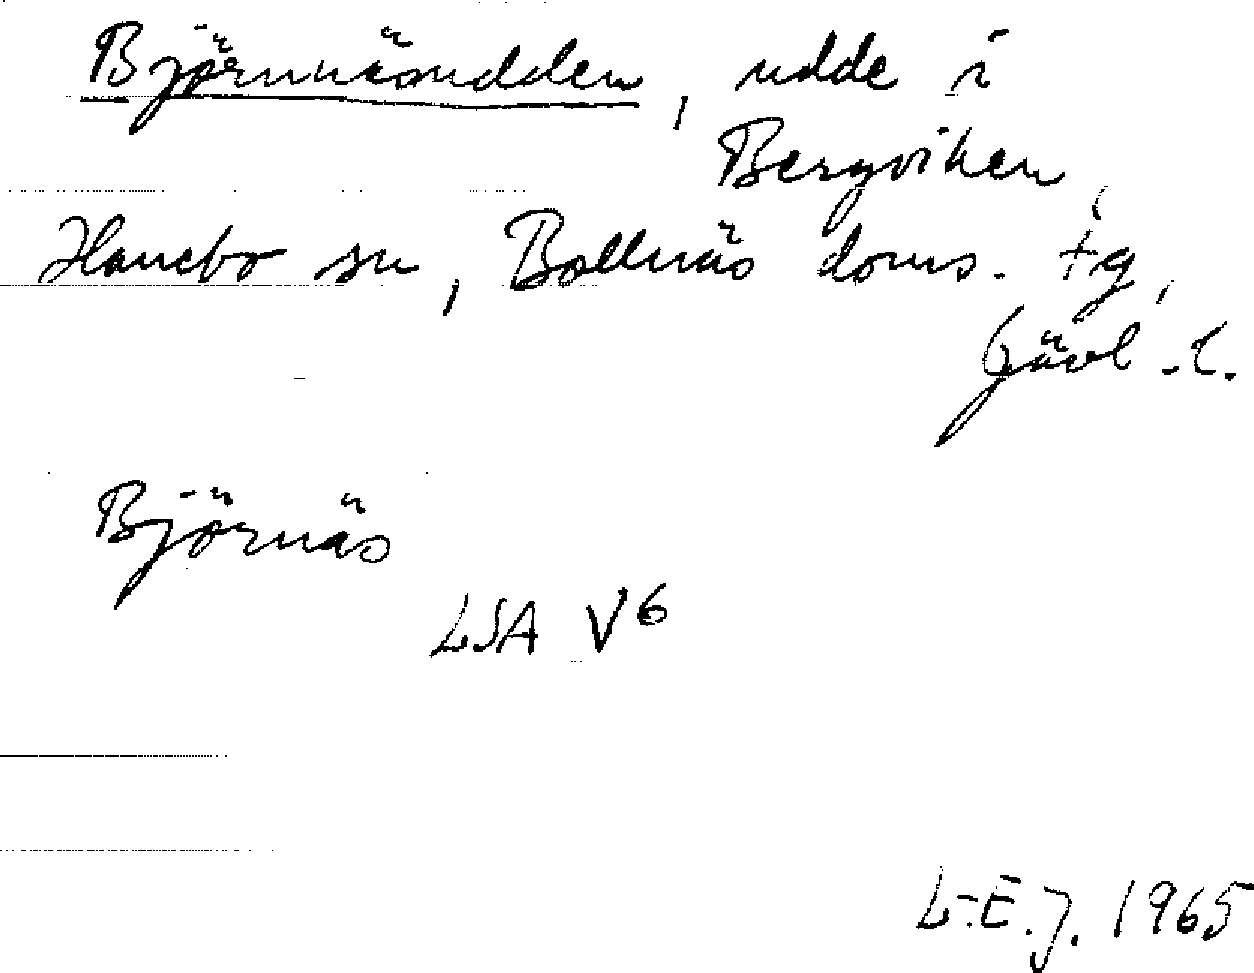 Björnnäsudden, udde i
Bergviken,
Hanebo sn, Bollnäs doms. tg,
Gävl. l.
Björnäs
LSA V6
L-E.J. 1965